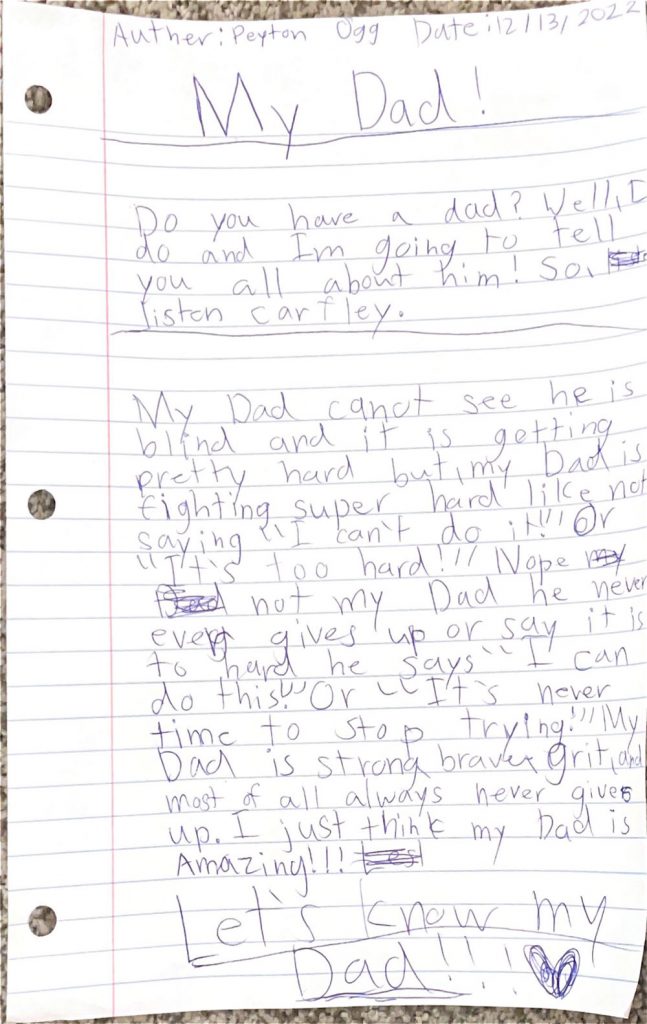 Auther: Peyton Ogg Date: 12/13/2022
My Dad!
Do you have a dad? Well, I
do and Im going to tell
you all about him! So,
listen carfley.
My Dad canot see he is
blind and it is getting
pretty hard but, my Dad is
fighting super hard like not
saying "I can't do it!" Or
"It's too hard!" Nope my
not my Dad he never
ever gives up or say it is
to hard he says "I can
do this!" Or "It's never
time to stop trying!" My
Dad is strong, brave, grit, and
most of all always never gives
up. I just think my Dad is
Amazing!!!
Let's know my
Dad!!!